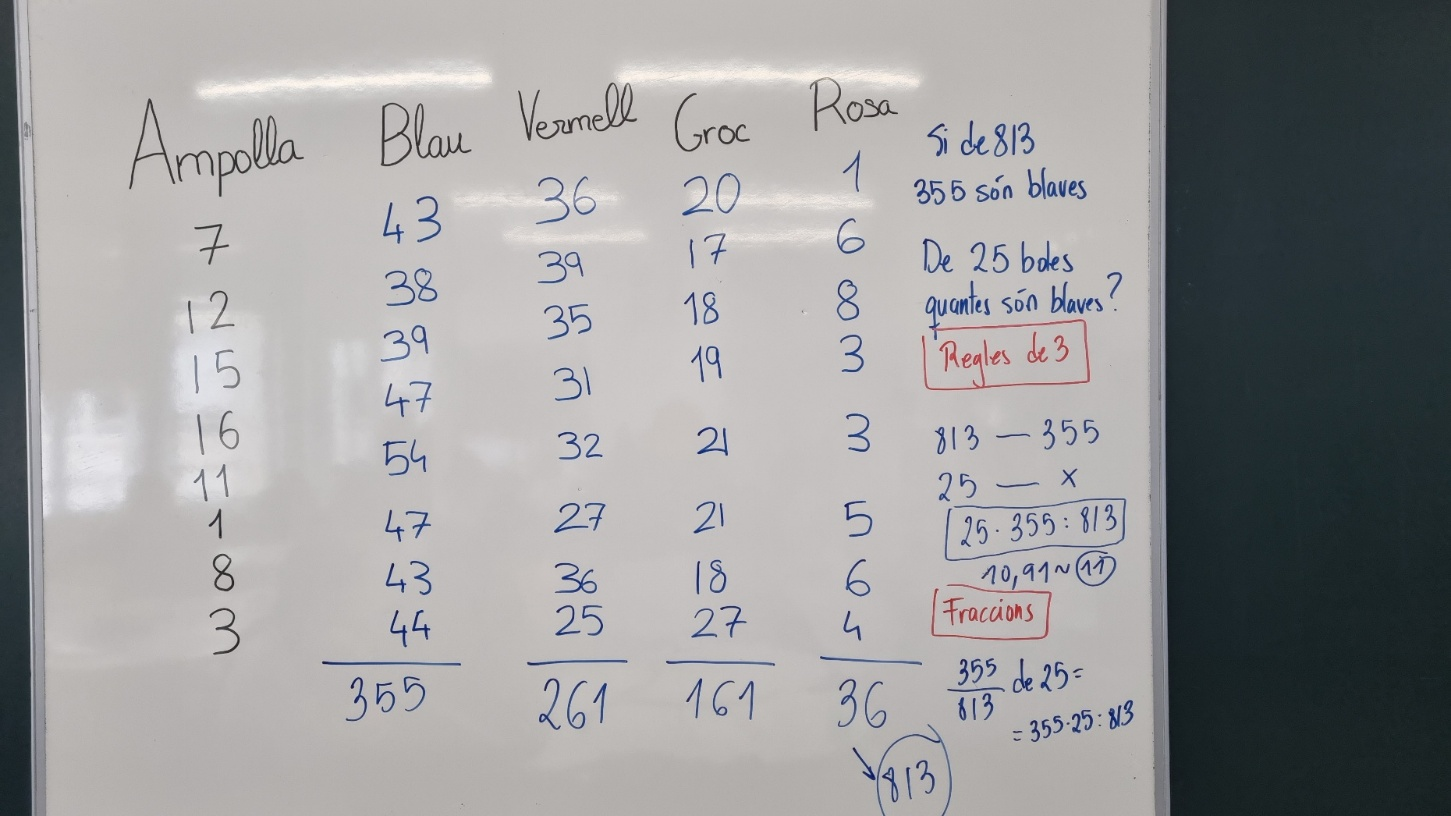 Ampolla Blau Vermell Groc Rosa
7 43 36 20 1
12 38 39 17 6
15 39 35 18 8
16 47 31 19 3
11 54 32 21 3
1 47 27 21 5
8 43 36 18 6
3 44 25 27 4
355 261 161 36
813
Si de 813
355 són blaves
De 25 boles
quantes són blaves?
Regles de 3
813 — 355
25 — x
25 · 355 : 813
10,91 ~ 11
Fraccions
355/813 de 25 =
= 355 · 25 : 813